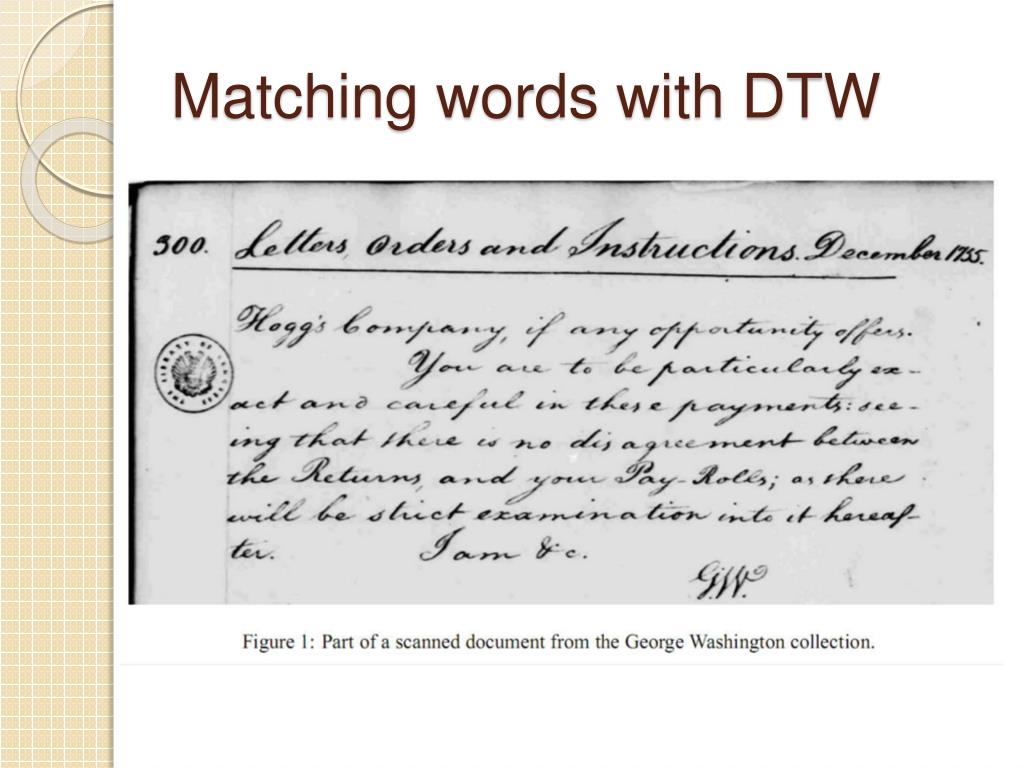 Matching words with DTW
300. Letters, Orders and Instructions. December 1755.
Hogg's Company, if any opportunity offers.
You are to be particularly ex-
act and careful in these payments: see-
ing that there is no disagreement between
the Returns, and your Pay-Rolls; as there
will be strict examination into it hereaf-
ter. I am &c.
G.W.
LIBRARY OF CONGRESS
Figure 1: Part of a scanned document from the George Washington collection.